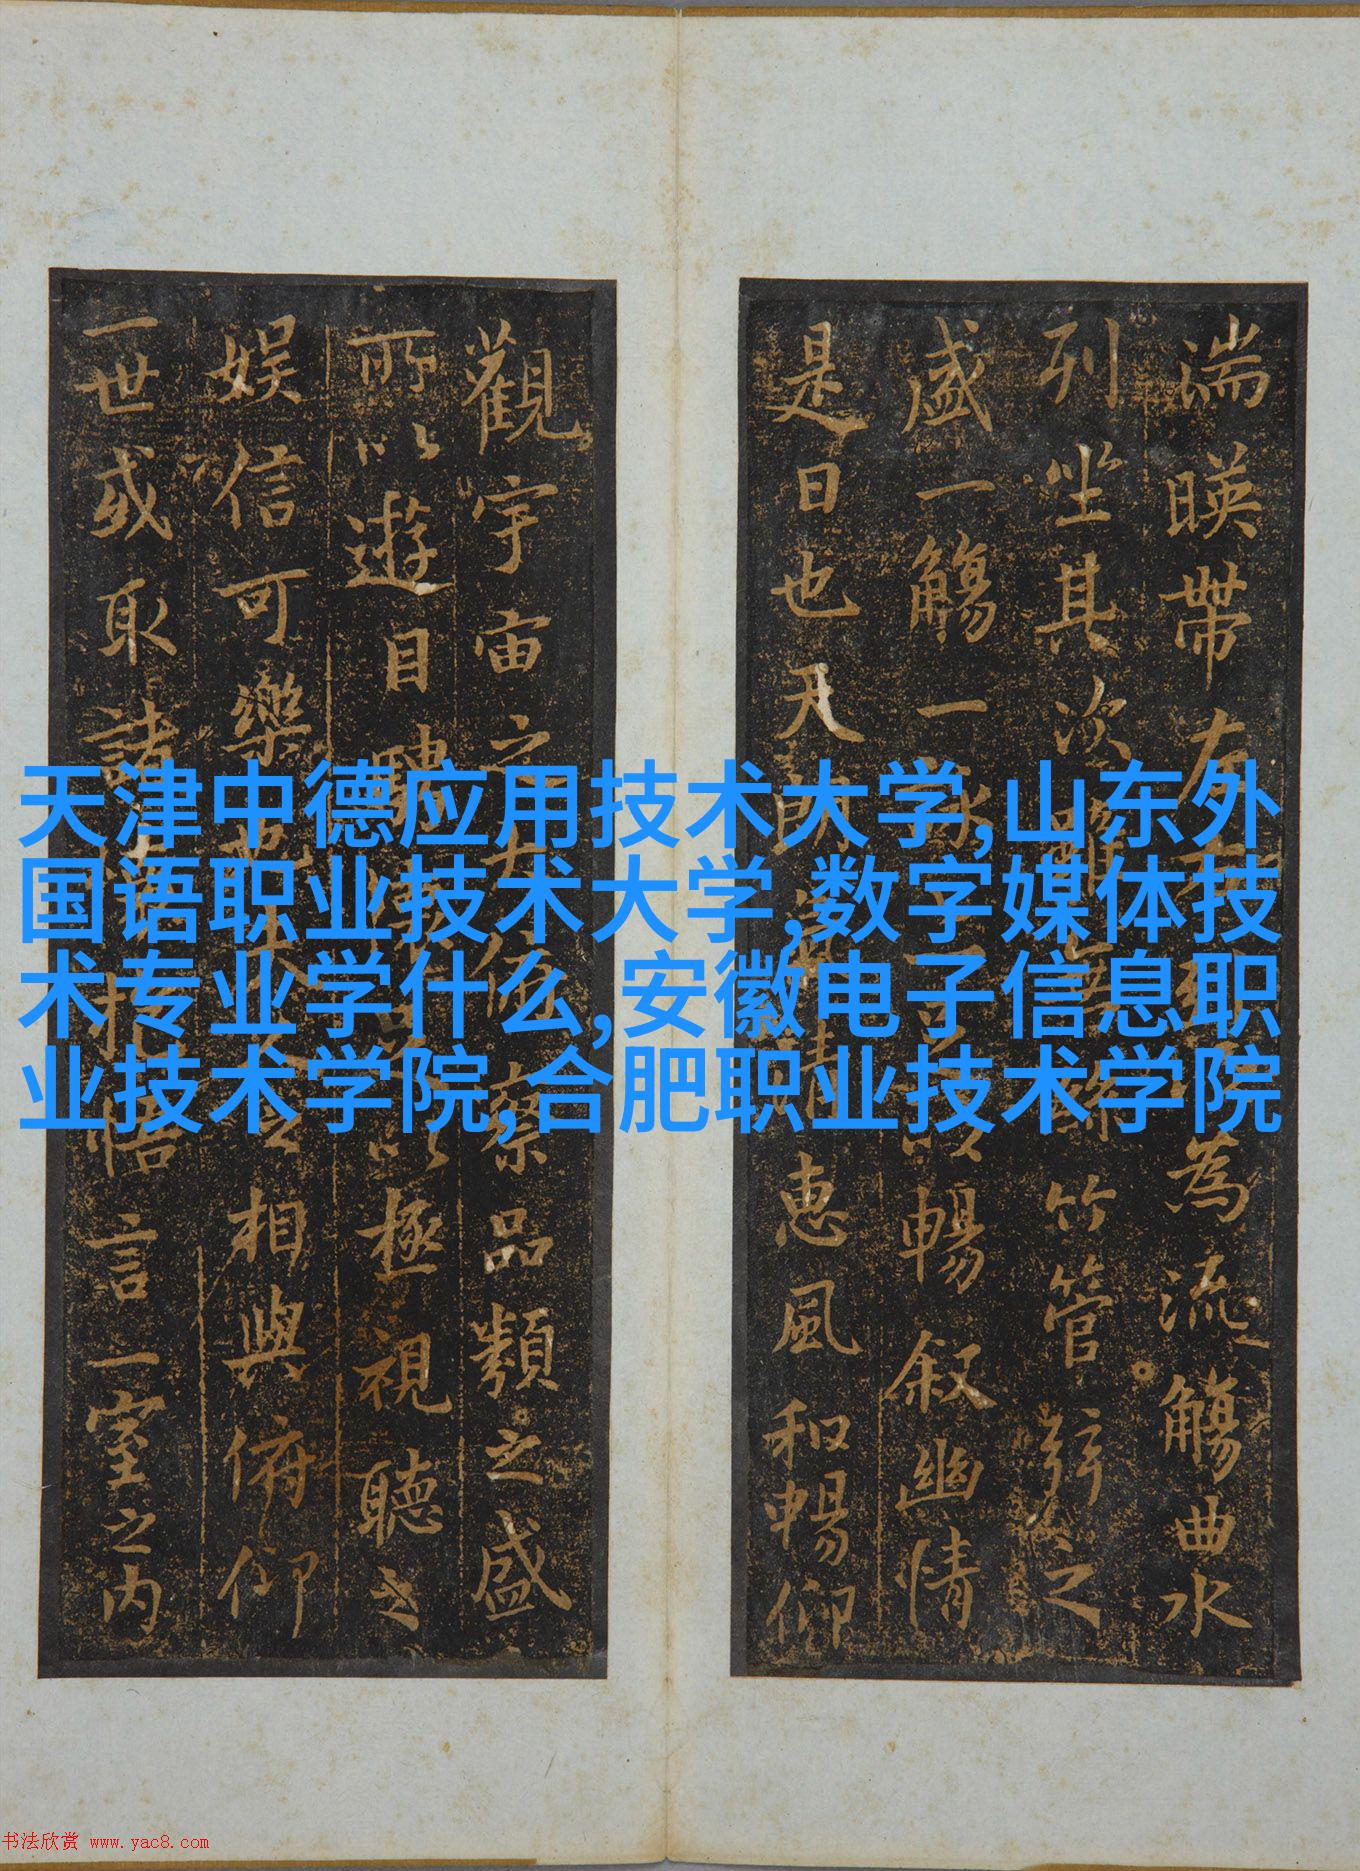 湍暎帶 為流觴曲水
列坐其次雖 竹管弦之
盛一觴一詠 暢叙幽情
是日也天朗 清惠風和暢仰
觀宇宙之大俯察品類之盛
所以遊目騁 以極視聽之
娱信可樂也 相與俯仰
一世或取諸 悟言一室之内
天津中德应用技术大学,山东外
国语职业技术大学,数字媒体技
术专业学什么,安徽电子信息职
业技术学院,合肥职业技术学院
书法欣赏 www.yac8.com